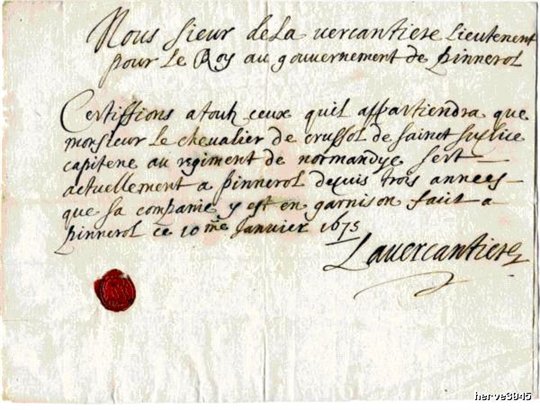 Nous sieur de La vercantiere Lieutenent
pour Le Roy au gouvernement de pinnerol
Certiffions a touts ceux quil appartiendra que
monsieur le chevalier de crussol de sainct sulpice
capitene au regiment de normandye sert
actuellement a pinnerol depuis trois annees
que sa companie y est en garnison fait a
pinnerol ce 10me Janvier 1675
Lavercantiere
herve3945